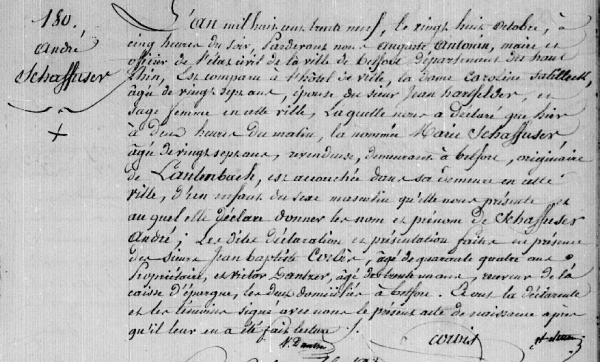 180.
André
Schaffuser
L'an mil huit cent trente neuf, le vingt huit octobre, à
cinq heures du soir, Pardevant nous Auguste Antonin, maire et
officier de l'état civil de la ville de Belfort Département du haut
Rhin, Est comparu à l'hôtel de ville, la dame Caroline
âgée de vingt sept ans, épouse du sieur Jean hartfelder, et
sage femme en cette ville, Laquelle nous a déclaré que hier
à deux heures du matin, la nommée Marie Schaffuser
âgée de vingt sept ans, revendeuse, demeurant à Belfort, originaire
de Lautenbach, est accouchée dans sa demeure en cette
ville, d'un enfant du sexe masculin qu'elle nous présente et
auquel elle déclare donner les nom et prénom de Schaffuser
André; Les dites déclaration et présentation faites en présence
des sieurs Jean Baptiste âgé de quarante quatre ans
propriétaire, et Victor Dantzer, âgé de trente ans, receveur de la
caisse d'épargne, les deux domiciliés à Belfort. Et ont la déclarante
et les témoins signé avec nous le présent acte de naissance après
qu'il leur en a été fait lecture ./.